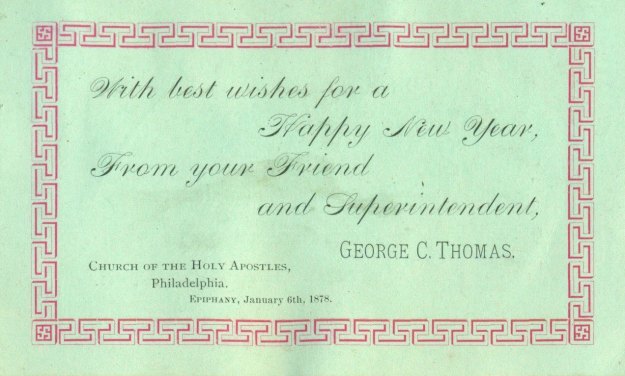 With best wishes for a
Happy New Year,
From your Friend
and Superintendent,
GEORGE C. THOMAS.
CHURCH OF THE HOLY APOSTLES,
Philadelphia.
EPIPHANY, January 6th, 1878.